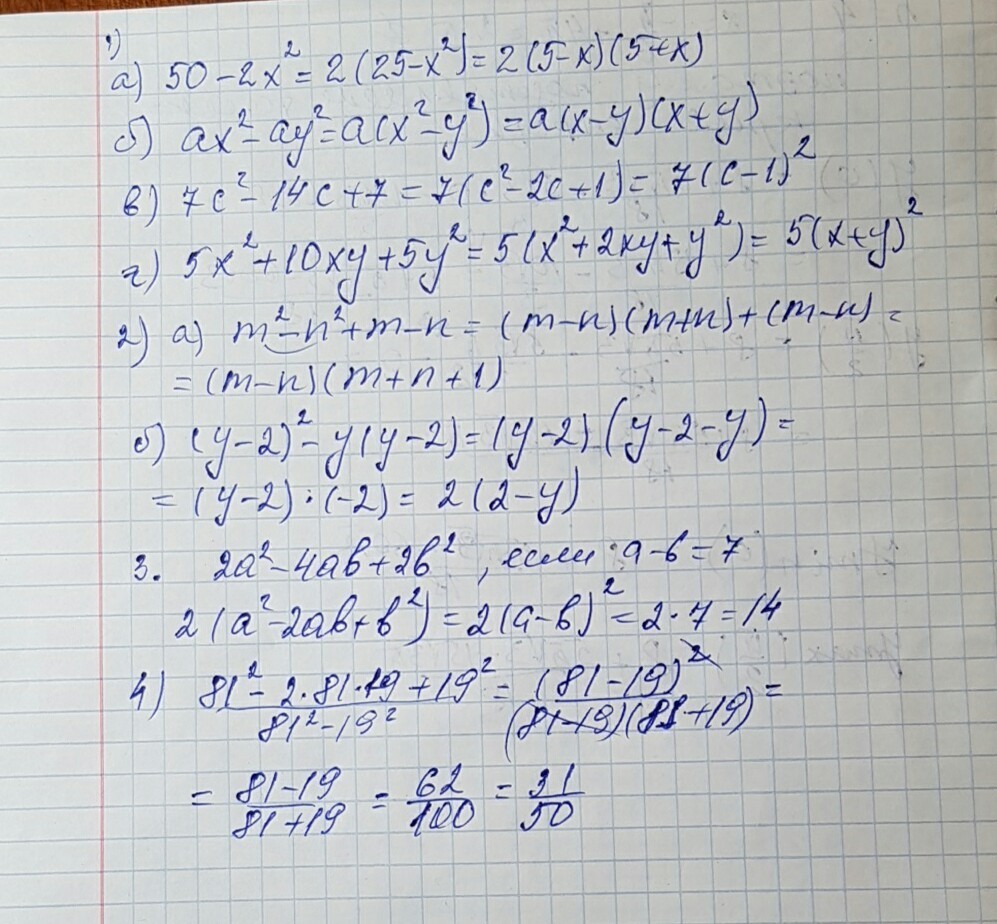 1)
а) 50 - 2x² = 2(25-x²) = 2(5-x)(5+x)
б) ax² - ay² = a(x² - y²) = a(x-y)(x+y)
в) 7c² - 14c + 7 = 7(c² - 2c + 1) = 7(c-1)²
г) 5x² + 10xy + 5y² = 5(x² + 2xy + y²) = 5(x+y)²
2) а) m² - n² + m - n = (m-n)(m+n) + (m-n) =
= (m-n)(m+n+1)
б) (y-2)² - y(y-2) = (y-2)(y-2-y) =
= (y-2)·(-2) = 2(2-y)
3. 2a² - 4ab + 2b², если a-b = 7
2(a² - 2ab + b²) = 2(a-b)² = 2·7 = 14
4) (81² - 2·81·19 + 19²)/(81² - 19²) = (81-19)²/((81-19)(81+19)) =
= (81-19)/(81+19) = 62/100 = 31/50